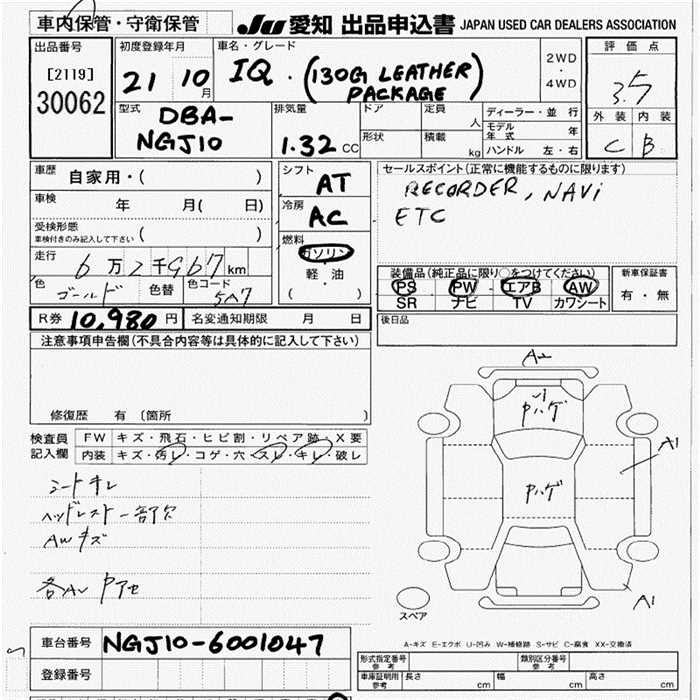 車内保管・守衛保管
JU 愛知 出品申込書 JAPAN USED CAR DEALERS ASSOCIATION
出品番号
[2119]
30062
初度登録年月
21 10月
車名・グレード
IQ. (130G LEATHER PACKAGE)
2WD
・
4WD
評価点
3.5
外装 内装
C B
型式
DBA-
NGJ10
排気量
1.32 CC
ドア
形状
定員 人
積載 kg
ディーラー・並行
モデル年式 年
ハンドル 左・右
車歴 自家用・( )
車検 年 月( 日)
受検形態
車検付きのみ記入して下さい ( )
走行 6万2千967km
色 ゴールド 色替 色コード 5A7
シフト
AT
冷房
AC
燃料
ガソリン
軽・油
( )
セールスポイント(正常に機能するものに限ります)
RECORDER, NAVi
ETC
装備品(純正品に限り○をつけてください)
PS PW エアB AW
SR ナビ TV カワシート
新車保証書
有・無
R券 10,980円 名変通知期限 月 日
後日品
注意事項申告欄(不具合内容等は具体的に記入して下さい)
修復歴 有 〔箇所 〕
検査員記入欄
FW キズ・飛石・ヒビ割・リペア跡・X要
内装 キズ・汚レ・コゲ・穴・スレ・キレ・破レ
シートキレ
ヘッドレスト一部欠
AWキズ
各AL Pアセ
A2
Pハゲ
A1
Pハゲ
A1
スペア
A-キズ E-エクボ U-凹み W-補修跡 S-サビ C-腐食 XX-交換済
車台番号 NGJ10-6001047
登録番号
形式指定番号
参考
類別区分番号
参考
車庫証明用
参考
長さ cm 幅 cm 高さ cm